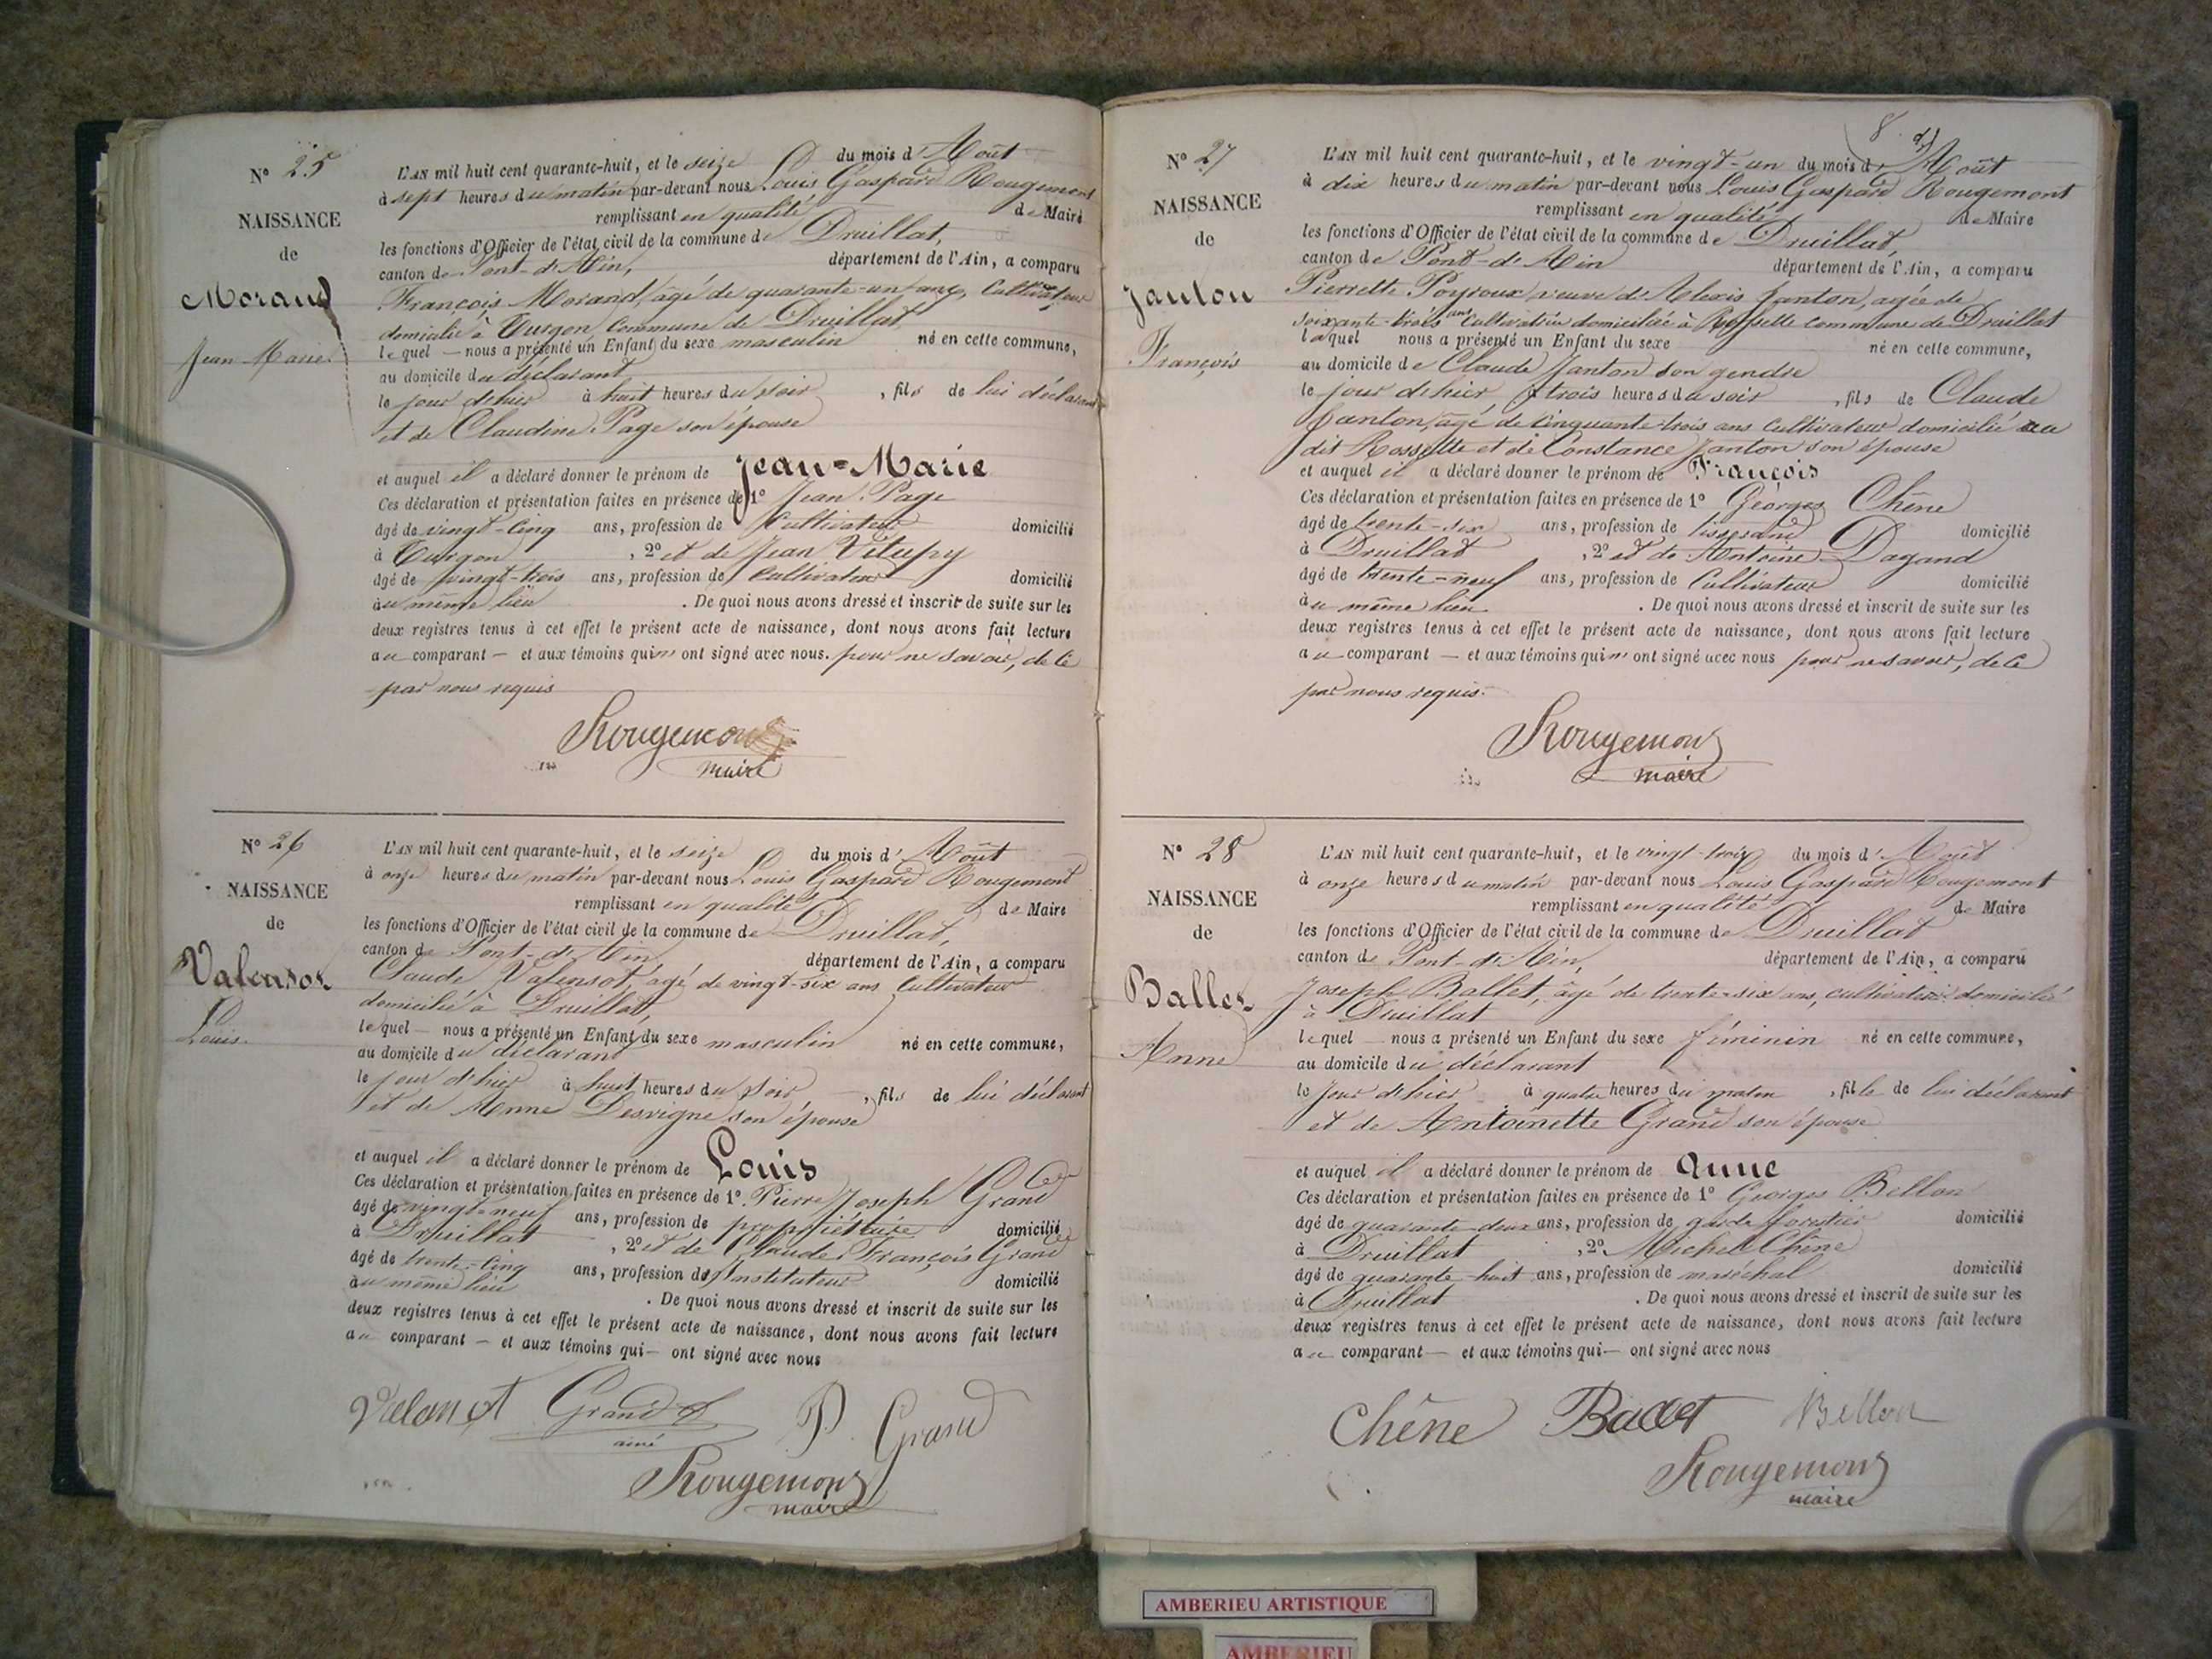 N° 25
NAISSANCE
de
Morand
Jean Marie.
L'AN mil huit cent quarante-huit, et le seize du mois d'Août
à sept heures du matin par-devant nous Louis Gaspard Rougemont
remplissant en qualité de Maire
les fonctions d'Officier de l'état civil de la commune de Druillat,
canton de Pont-d'Ain, département de l'Ain, a comparu
François Morand, âgé de quarante-un ans, Cultivateur
domicilié à Turgon Commune de Druillat
lequel — nous a présenté un Enfant du sexe masculin né en cette commune,
au domicile du déclarant
le jour d'hier à huit heures du soir, fils de lui déclarant
et de Claudine Page son épouse
et auquel il a déclaré donner le prénom de Jean-Marie
Ces déclaration et présentation faites en présence de 1° Jean Page
âgé de vingt-cinq ans, profession de Cultivateur domicilié
à Turgon, 2° et de Jean Vitupy
âgé de vingt-trois ans, profession de Cultivateur domicilié
au même lieu. De quoi nous avons dressé et inscrit de suite sur les
deux registres tenus à cet effet le présent acte de naissance, dont nous avons fait lecture
au comparant — et aux témoins qui n'ont signé avec nous. pour ne savoir, de ce
par nous requis
Rougemont
maire
N° 26
NAISSANCE
de
Valensot
Louis.
L'AN mil huit cent quarante-huit, et le seize du mois d'Août
à onze heures du matin par-devant nous Louis Gaspard Rougemont
remplissant en qualité de Maire
les fonctions d'Officier de l'état civil de la commune de Druillat,
canton de Pont-d'Ain département de l'Ain, a comparu
Claude Valensot, âgé de vingt-six ans Cultivateur
domicilié à Druillat,
lequel — nous a présenté un Enfant du sexe masculin né en cette commune,
au domicile du déclarant
le jour d'hier à huit heures du soir, fils de lui déclarant
et de Anne Desvigne son épouse
et auquel il a déclaré donner le prénom de Louis
Ces déclaration et présentation faites en présence de 1° Pierre Joseph Grand
âgé de vingt-neuf ans, profession de propriétaire domicilié
à Druillat, 2° et de Claude François Grand
âgé de trente-cinq ans, profession de Instituteur domicilié
au même lieu. De quoi nous avons dressé et inscrit de suite sur les
deux registres tenus à cet effet le présent acte de naissance, dont nous avons fait lecture
au comparant — et aux témoins qui — ont signé avec nous
Valensot Grand P. Grand
ainé
Rougemont
maire
8
N° 27
NAISSANCE
de
Janton
François
L'AN mil huit cent quarante-huit, et le vingt-un du mois d'Août
à dix heures du matin par-devant nous Louis Gaspard Rougemont
remplissant en qualité de Maire
les fonctions d'Officier de l'état civil de la commune de Druillat,
canton de Pont-d'Ain département de l'Ain, a comparu
Pierrette Poyroux veuve d'Alexis Janton, agée de
soixante-trois ans Cultivatrice domiciliée à Rossette commune de Druillat
laquel nous a présenté un Enfant du sexe né en cette commune,
au domicile de Claude Janton son gendre
le jour d'hier à trois heures du soir, fils de Claude
Janton, âgé de cinquante-trois ans Cultivateur domicilié au
dit Rossette et de Constance Janton son épouse
et auquel il a déclaré donner le prénom de François
Ces déclaration et présentation faites en présence de 1° Georges Chêne
âgé de trente-six ans, profession de tisserand domicilié
à Druillat, 2° et de Antoine Dagand
âgé de trente-neuf ans, profession de Cultivateur domicilié
au même lieu. De quoi nous avons dressé et inscrit de suite sur les
deux registres tenus à cet effet le présent acte de naissance, dont nous avons fait lecture
au comparant — et aux témoins qui n'ont signé avec nous pour ne savoir, de ce
par nous requis.
Rougemont
maire
N° 28
NAISSANCE
de
Ballet
Anne
L'AN mil huit cent quarante-huit, et le vingt-trois du mois d'Août
à onze heures du matin par-devant nous Louis Gaspard Rougemont
remplissant en qualité de Maire
les fonctions d'Officier de l'état civil de la commune de Druillat
canton de Pont-d'Ain, département de l'Ain, a comparu
Joseph Ballet, âgé de trente-six ans, cultivateur domicilié
à Druillat
lequel nous a présenté un Enfant du sexe féminin né en cette commune,
au domicile du déclarant
le jour d'hier à quatre heures du matin, fille de lui déclarant
et de Antoinette Grand son épouse
et auquel il a déclaré donner le prénom de Anne
Ces déclaration et présentation faites en présence de 1° Georges Bellon
âgé de quarante-deux ans, profession de garde forestier domicilié
à Druillat, 2° Michel Chêne
âgé de quarante-huit ans, profession de maréchal domicilié
à Druillat. De quoi nous avons dressé et inscrit de suite sur les
deux registres tenus à cet effet le présent acte de naissance, dont nous avons fait lecture
au comparant — et aux témoins qui — ont signé avec nous
Chêne Ballet Bellon
Rougemont
maire
AMBERIEU ARTISTIQUE
AMBERIEU